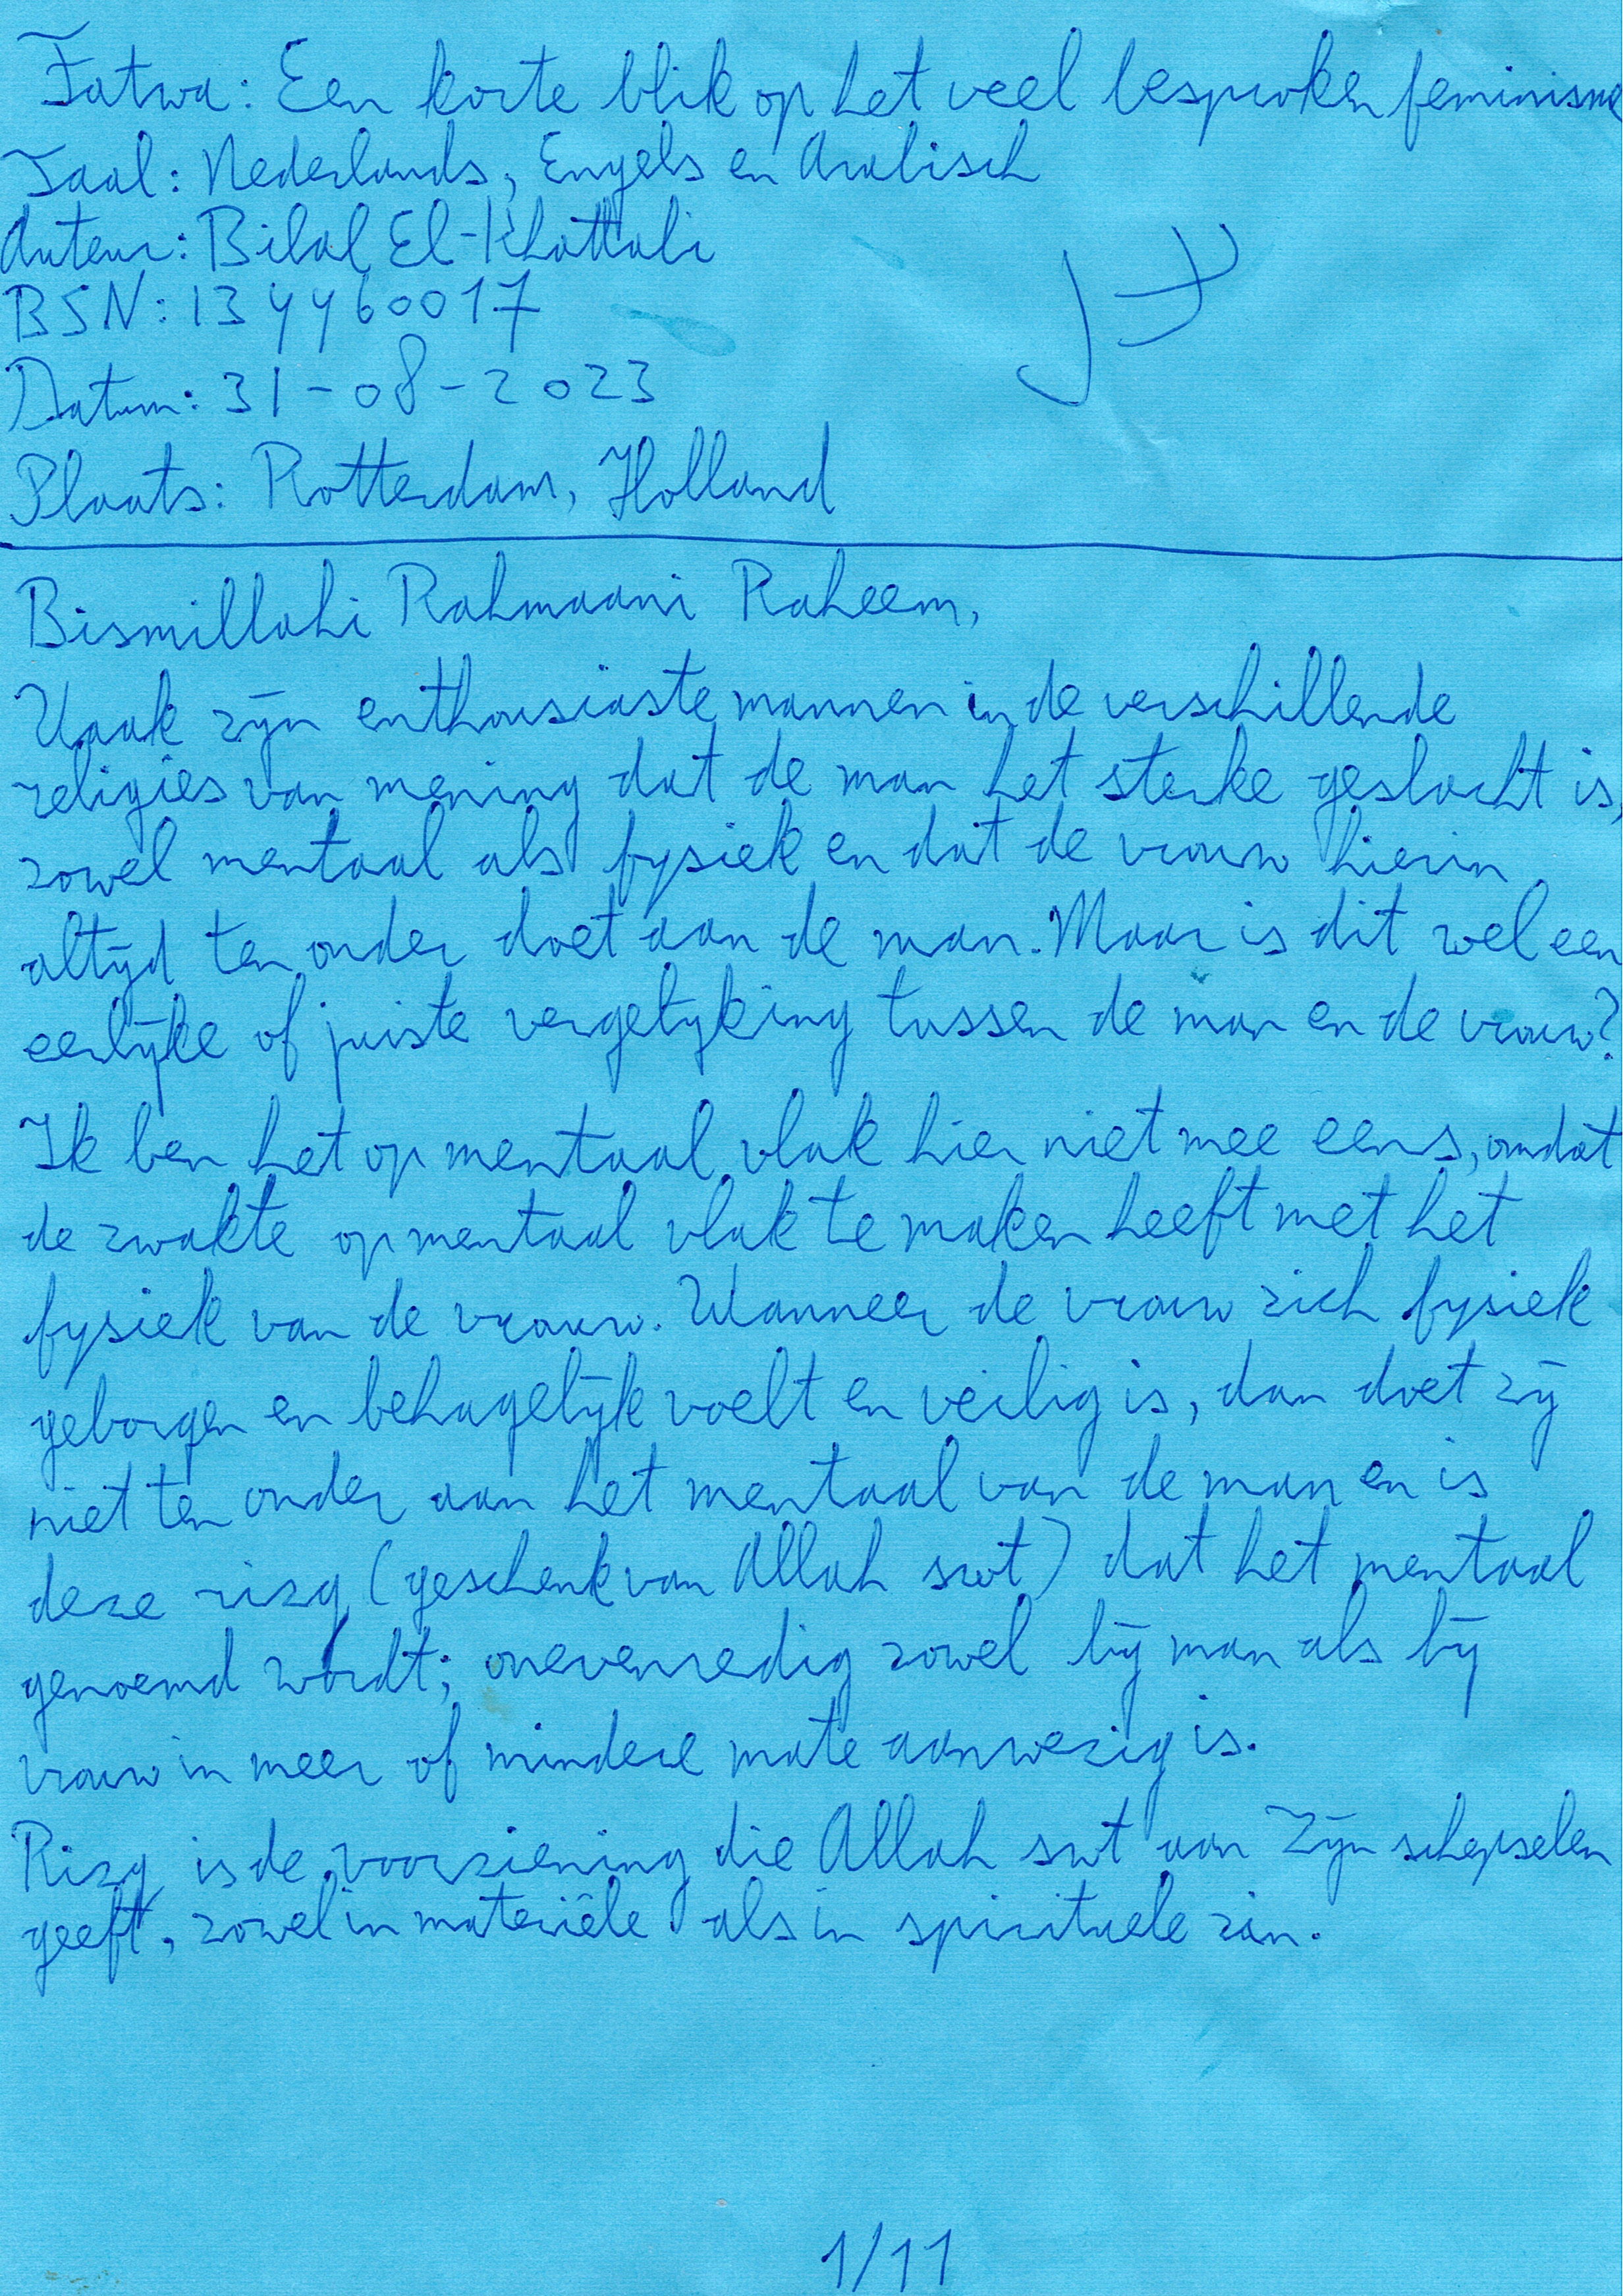 Fatwa: Een korte blik op het veel besproken feminisme
Taal: Nederlands, Engels en Arabisch
Auteur: Bilal El-Khattabi
BSN: 134460017
Datum: 31-08-2023
Plaats: Rotterdam, Holland
Bismillahi Rahmaani Raheem,
Vaak zijn enthousiaste mannen in de verschillende
religies van mening dat de man het sterke geslacht is,
zowel mentaal als fysiek en dat de vrouw hierin
altijd ten onder doet aan de man. Maar is dit wel een
eerlijke of juiste vergelijking tussen de man en de vrouw?
Ik ben het op mentaal vlak hier niet mee eens, omdat
de zwakte op mentaal vlak te maken heeft met het
fysiek van de vrouw. Wanneer de vrouw zich fysiek
geborgen en behagelijk voelt en veilig is, dan doet zij
niet ten onder aan het mentaal van de man en is
deze rizq (geschenk van Allah swt) dat het mentaal
genoemd wordt; onevenredig zowel bij man als bij
vrouw in meer of mindere mate aanwezig is.
Rizq is de voorziening die Allah swt aan Zijn schepselen
geeft, zowel in materiële als in spirituele zin.
1/11